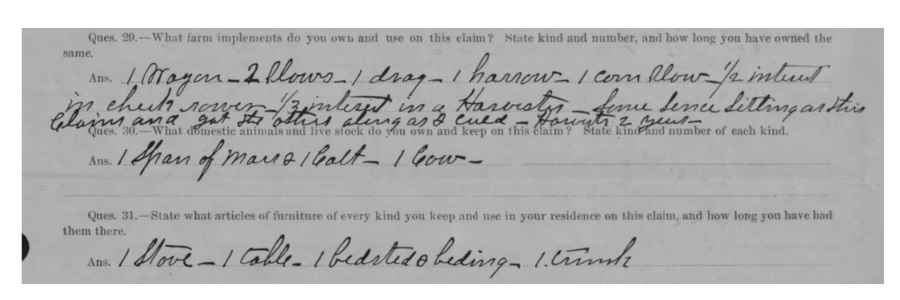 Ques. 29.—What farm implements do you own and use on this claim? State kind and number, and how long you have owned the
same.
Ans. 1 Wagon – 2 Plows – 1 drag – 1 harrow – 1 corn Plow – 1/2 interest
in check rower – 1/3 interest in a Harvester – Some Sence Sitting on this
Claim and got the others along as I could – Harvester 2 years –
Ques. 30.—What domestic animals and live stock do you own and keep on this claim? State kind and number of each kind.
Ans. 1 Span of mares 1 Colt – 1 Cow –
Ques. 31.—State what articles of furniture of every kind you keep and use in your residence on this claim, and how long you have had
them there.
Ans. 1 Stove – 1 table – 1 bedsted & beding – 1 trunk